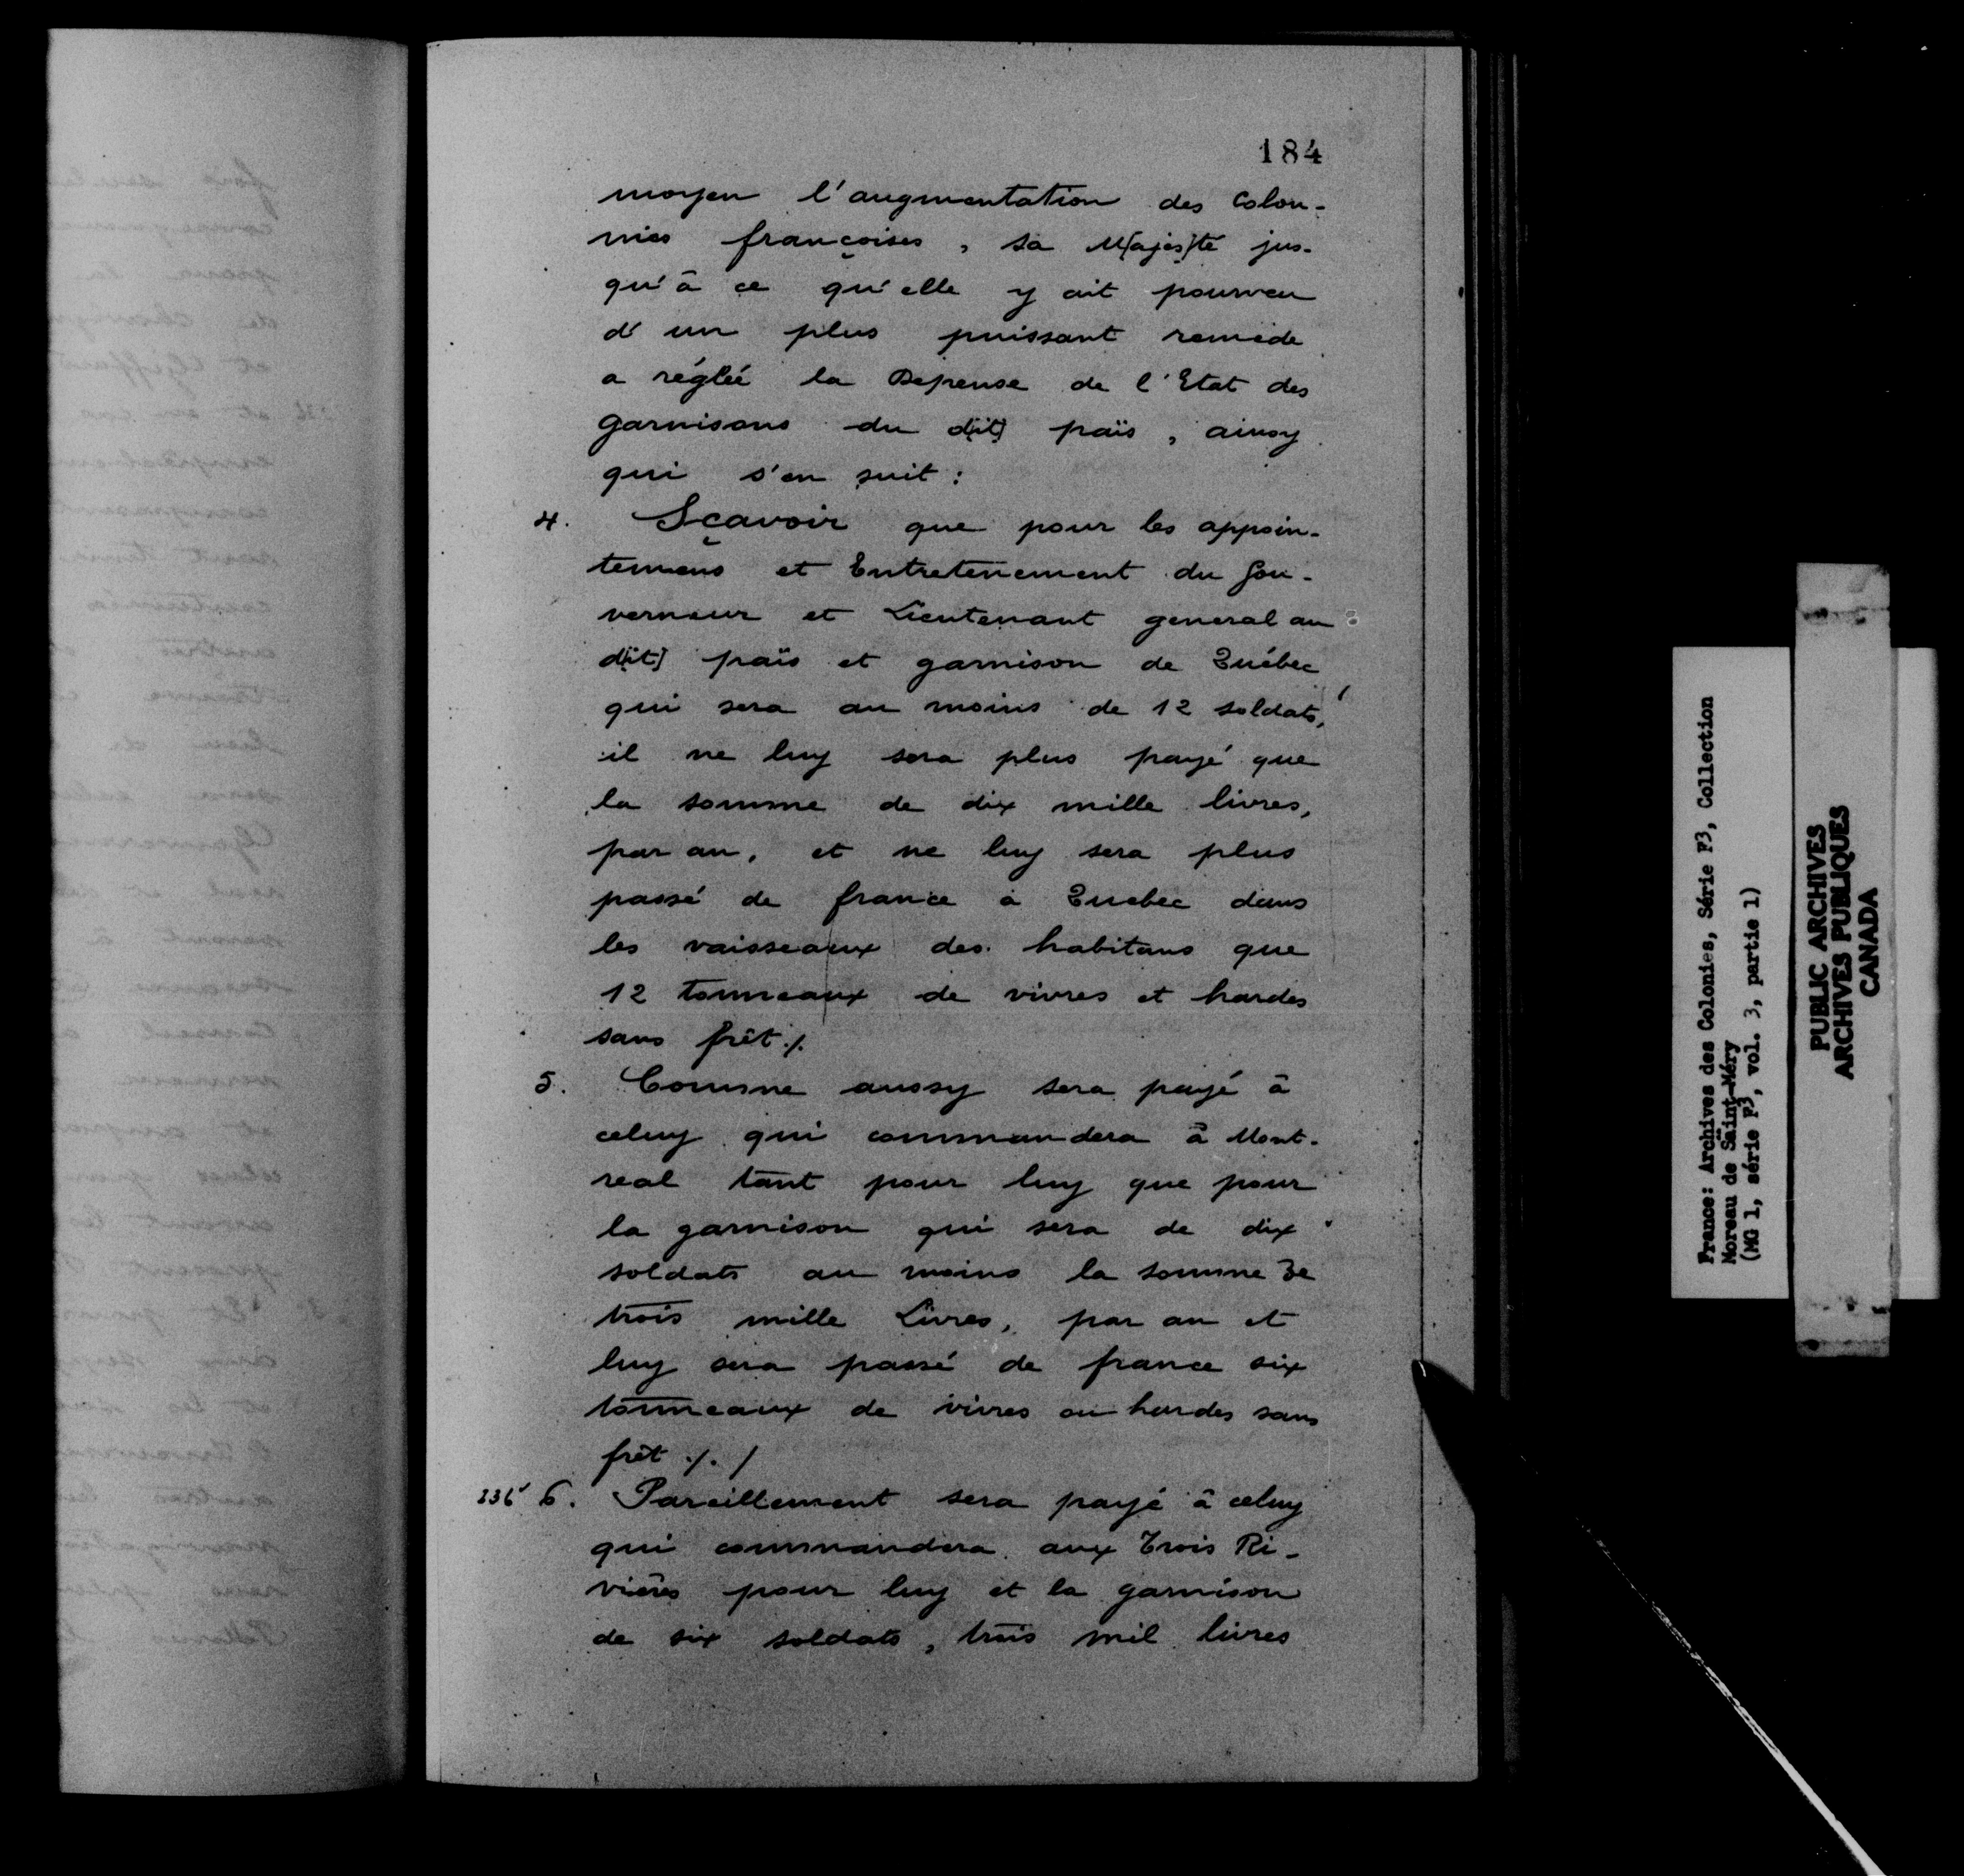 184
moyen l'augmentation des Colon-
nies françoises, sa M[ajes]té jus-
qu'à ce qu'elle y ait pourveu
d'un plus puissant remède
a réglée la Depense de l'Etat des
garnisons du d[it] païs, ainsy
qui s'en suit :
4. Sçavoir que pour les appoin-
temens et Entretenement du Gou-
verneur et Lieutenant general au
d[it] païs et garnison de Québec
qui sera au moins de 12 soldats,
il ne luy sera plus payé que
la somme de dix mille livres,
par an, et ne luy sera plus
passé de france à Quebec dans
les vaisseaux des habitans que
12 tonneaux de vivres et hardes
sans frêt ./.
5. Comme aussy sera payé à
celuy qui commandera à Mont-
real tant pour luy que pour
la garnison qui sera de dix
soldats au moins la somme de
trois mille Livres, par an et
luy sera passé de france six
tonneaux de vivres ou hardes sans
frêt ./. /
236 6. Pareillement sera payé à celuy
qui commandera aux Trois Ri-
vières pour luy et la garnison
de six soldats, trois mil livres
France: Archives des Colonies, Série F3, Collection
Moreau de Saint-Méry
(MG 1, série F3, vol. 3, partie 1)
PUBLIC ARCHIVES
ARCHIVES PUBLIQUES
CANADA